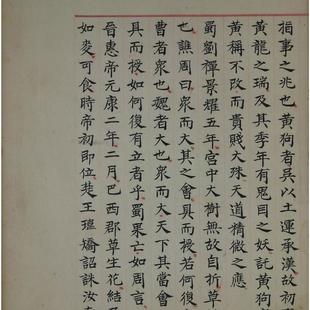 指事之兆也黃狗者吳以土運承漢故初
黃龍之瑞及其季年有鬼目之妖託黃狗
黃稱不改而貴賤大殊天道精微之應
蜀劉禪景耀五年宮中大樹無故自折草
也譙周曰眾而大其之會具而授若何復
曹者眾也魏者大也眾而大天下其當會
具而授如何復有立者乎蜀果亡如周言
晉惠帝元康二年二月巴西郡草生花結
如麥可食時帝初即位楚王瑋矯詔誅汝